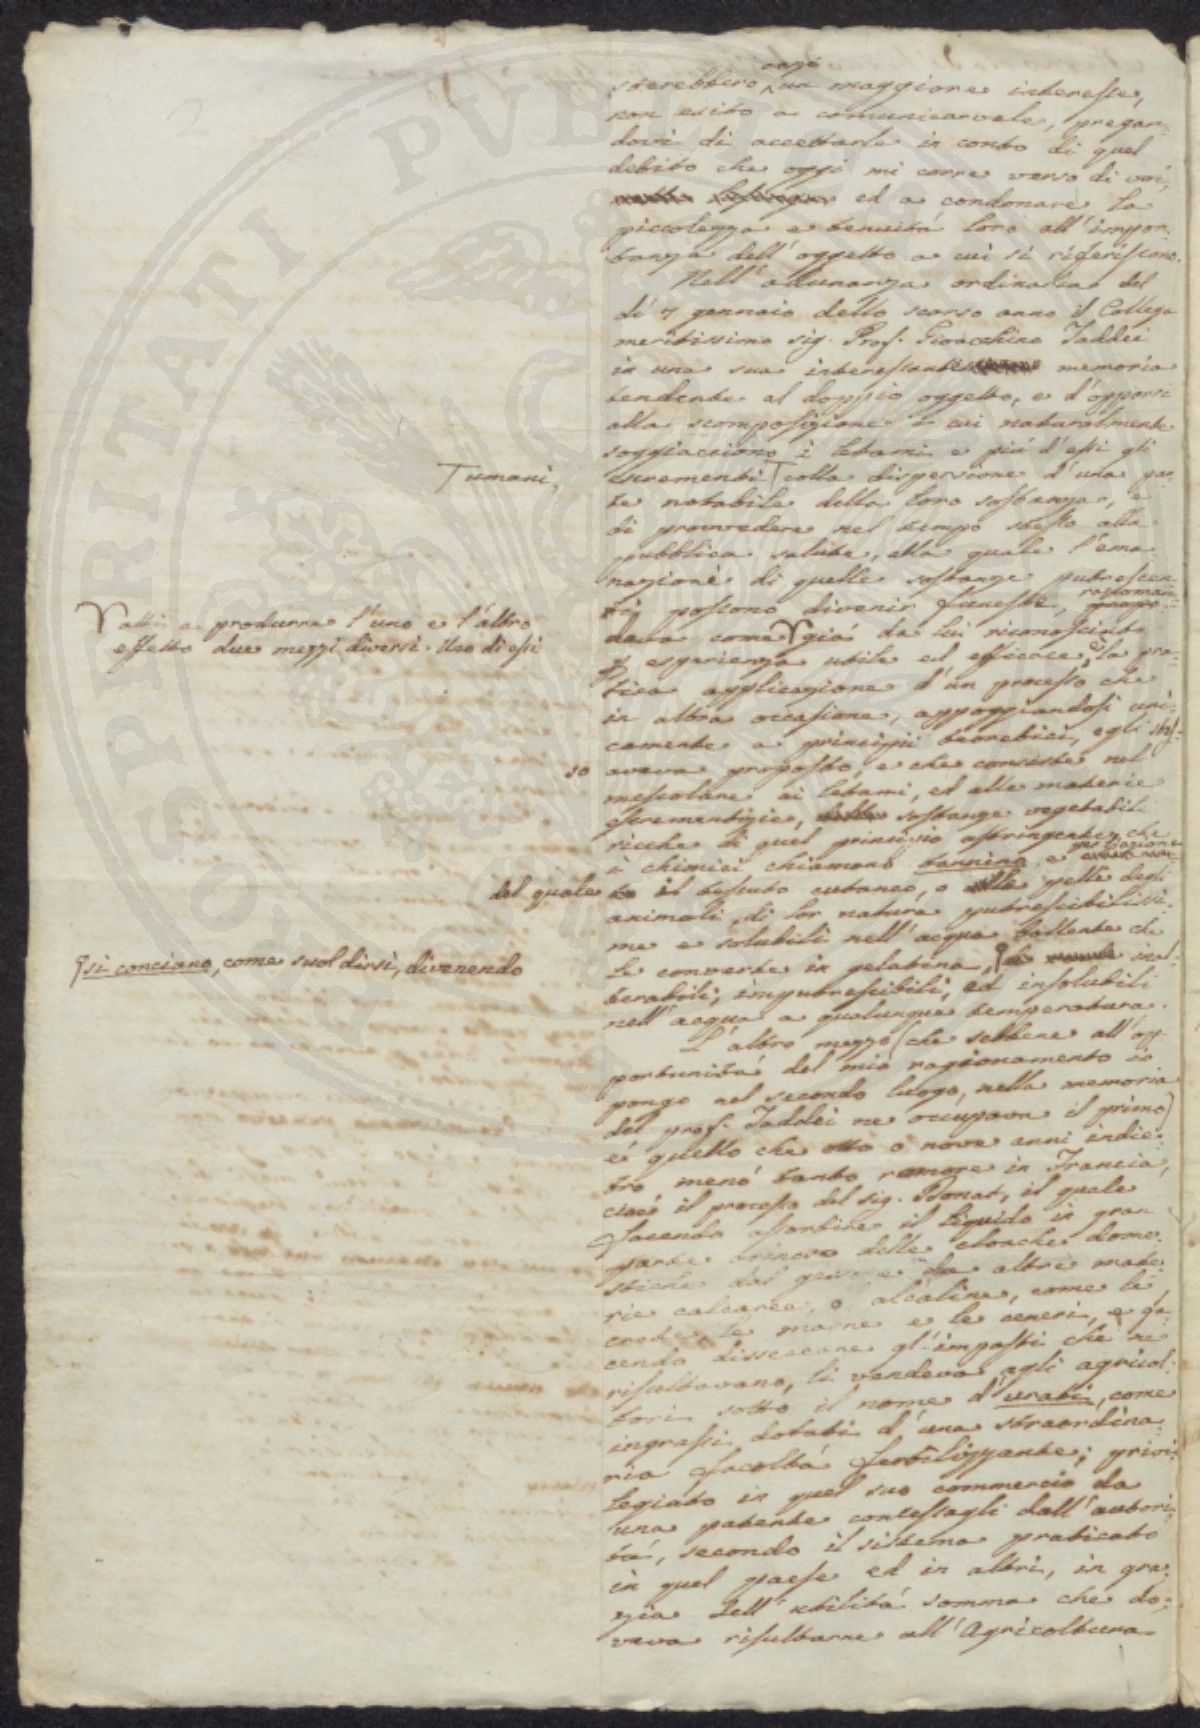 sterebbero un maggiore interesse,
non esito a comunicarvele, pregan-
dovi di accettarle in conto di quel
debito che oggi mi corre verso di voi,
ed a condonare la
piccolezza e tenuità loro all'impor-
tanza dell'oggetto a cui si riferiscono.
Nell'adunanza ordinaria del
dì 7 gennaio dello scorso anno il Collega
meritissimo sig. Prof. Gioacchino Taddei
in una sua interessante memoria
tendente al doppio oggetto, e d'opporsi
alla scomposizione a cui naturalmente
soggiacciono i letami e più d'essi gli
escrementi colla dispersione d'una par-
Tumani,
te notabile della loro sostanza, e
di provvedere nel tempo stesso alla
pubblica salute, alla quale l'ema-
nazioni di quelle sostanze putrescen-
ti possono divenir funeste,
raccoman
Vatti a produrre l'uno e l'altro
effetto due mezzi diversi. Uno di essi
dava come già da lui riconosciuto
esperienza utile ed efficace, è la pra-
tica applicazione d'un processo che
in altra occasione, appoggiandosi uni-
camente a principii teoretici, egli stes-
so aveva proposto, e che consiste nel
mescolare ai letami, ed alle materie
escrementizie, sostanze vegetabili
ricche di quel principio astringente, che
i chimici chiamano tannino e
per l'azione
del quale il tessuto cutaneo, o pelle degli
animali, di lor natura putrescibilissi-
me e solubili nell'acqua bollente che
le converte in gelatina,
si conciano, come suol dirsi, divenendo
inal-
terabili, imputrescibili, ed insolubili
nell'acqua a qualunque temperatura.
L'altro mezzo (che sebbene all'op-
portunità del mio ragionamento io
pongo nel secondo luogo, nella memoria
del prof. Taddei ne occupava il primo)
è quello che otto o nove anni indie-
tro menò tanto rumore in Francia,
cioè il processo del sig. Donat, il quale
facendo assorbire il liquido in gran
parte orinoso delle cloache dome-
stiche dal gesso e da altre mate-
rie calcaree, o alcaline, come le
crete, le marne e le ceneri, e fa-
cendo disseccare gl'impasti che ne
risultavano, li vendeva agli agricol-
tori sotto il nome d'urati, come
ingrassi dotati d'una straordina-
ria facoltà fertilizzante; privi-
legiato in quel suo commercio da
una patente concessagli dall'autori-
tà, secondo il sistema praticato
in quel paese ed in altri, in gra-
zia dell'utilità somma che do-
veva risultarne all'Agricoltura